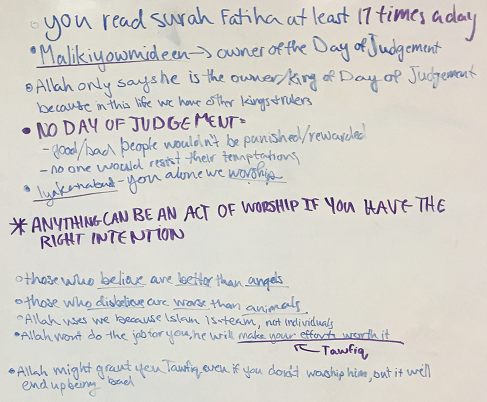 you read surah Fatiha at least 17 times a day
Malikiyowmideen → owner of the Day of Judgement
Allah only says he is the owner/king of Day of Judgement
because in this life we have other kings & rulers
NO DAY OF JUDGEMENT=
- good/bad people wouldn't be punished/rewarded
- no one would resist their temptations
Iyakanabud - you alone we worship
* ANYTHING CAN BE AN ACT OF WORSHIP IF YOU HAVE THE
RIGHT INTENTION
those who believe are better than angels
those who disbelieve are worse than animals
Allah uses we because Islam is team, not individuals
Allah wont do the job for you, he will make your efforts worth it
Tawfiq
Allah might grant you Tawfiq even if you don't worship him, but it will
end up being bad